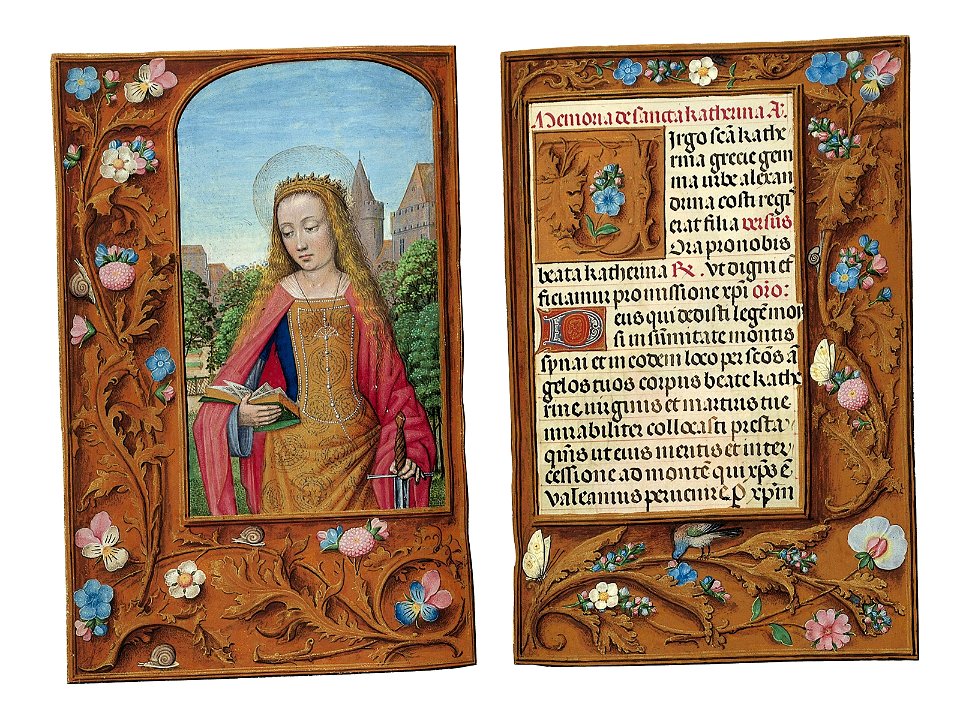 Memoria de sancta katherina A͞.
Virgo scā kathe
rina grecie gem
ma urbe alexan
drina costi regi͞
erat filia versus
Ora pro nobis
beata katherina ℞. Vt digni ef
ficiamur promissione xpi oro:
Deus qui dedisti legē moy
si in sūmitate montis
synai et in eodem loco per scōs ā
gelos tuos corpus beate kathe
rine uirginis et martiris tue
mirabiliter collocasti presta
q̄m̄s ut eius meritis et inter
cessione ad montē qui xp̄s ē
valeamus peruenire P xp̄m